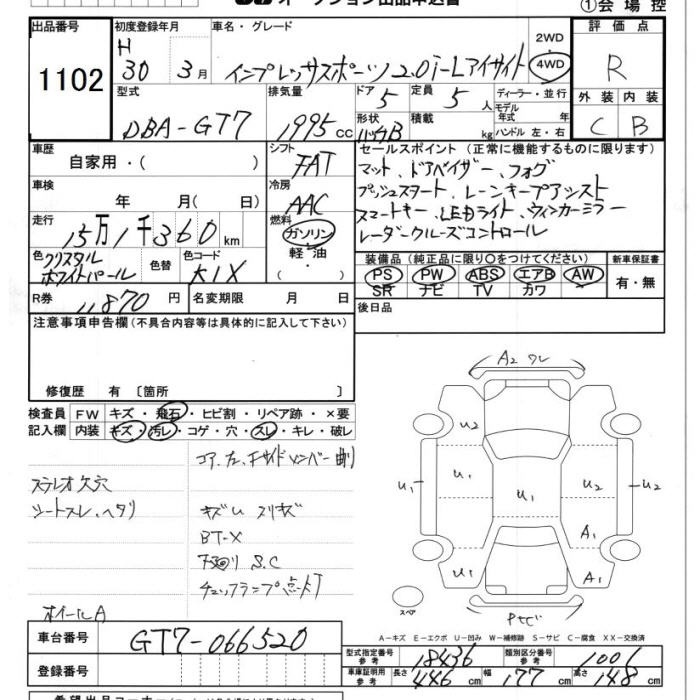 オークション出品申込書
①会場控
出品番号
1102
初度登録年月
H
30 3月
車名・グレード
インプレッサスポーツ2.0i-Lアイサイト
2WD
4WD
評価点
R
外装 内装
C B
型式
DBA-GT7
排気量
1995 cc
ドア
5
定員
5 人
形状
ハッチB
積載
kg
ディーラー・並行
モデル
年式 年
ハンドル 左・右
車歴
自家用・( )
シフト
FAT
車検
年 月( 日)
冷房
AAC
走行
15万1千360km
燃料
ガソリン
・
軽・油
色
クリスタル
ホワイトパール
色替
色コード
K1X
R券
11870 円
名変期限 月 日
セールスポイント (正常に機能するものに限ります)
マット、ドアバイザー、フォグ
プッシュスタート、レーンキープアシスト
スマートキー、LEDライト、ウィンカーミラー
レーダークルーズコントロール
装備品 (純正品に限り〇をつけてください)
PS PW ABS エアB AW
SR ナビ TV カワ
新車保証書
有・無
後日品
注意事項申告欄(不具合内容等は具体的に記入して下さい)
修復歴 有 〔箇所 〕
検査員
記入欄
FW キズ・飛石・ヒビ割・リペア跡・×要
内装 キズ・汚レ・コゲ・穴・スレ・キレ・破レ
ステレオ欠穴
シートスレ、ヘタリ
ホイールA
コア、左、Fサイドメンバー曲り
キズU スリキズ
BT-X
下廻り S.C
チェックランプ点灯
A2 ワレ
U2
U1
U1
U1
U1
U2
U2
A1
A1
スペア
Pサビ
A-キズ E-エクボ U-凹み W-補修跡 S-サビ C-腐食 XX-交換済
車台番号
GT7-066520
登録番号
型式指定番号
参考
18436
類別区分番号
参考
1006
車庫証明用
参考
長さ
446 cm
幅
177 cm
高さ
148 cm